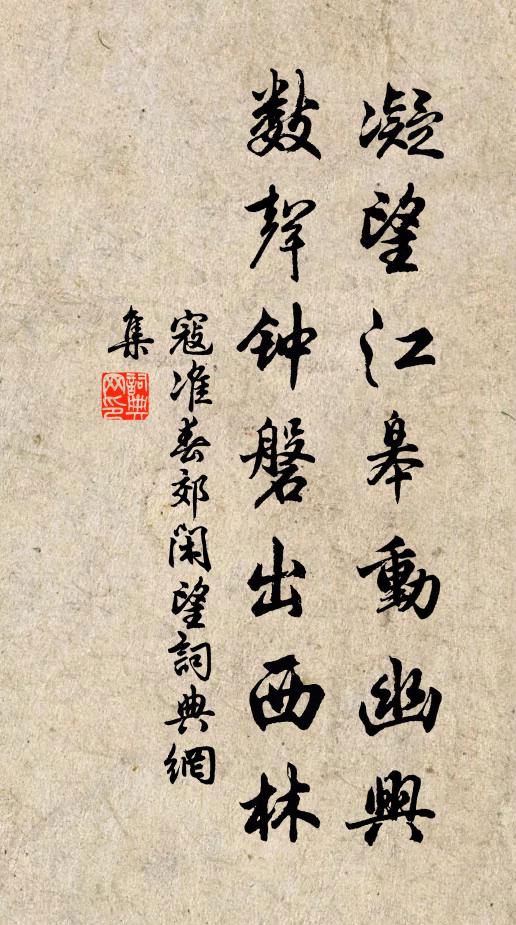 凝望江皋動幽興
數聲钟磐出西林
寇准春郊闲望詞典網
集
詞典
网印